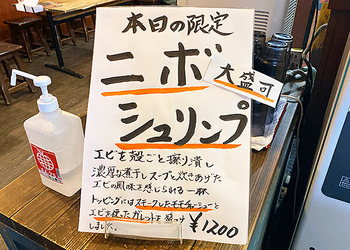 本日の限定
ニボ
大盛可
シュリンプ
エビを殻ごと擦り潰し
濃厚な煮干しスープと炊きあげた
エビの風味を感じられる一杯
トッピングにはスモークしたモモチャーシューと
エビを使ったガレットを乗っけ
しました。
¥1200